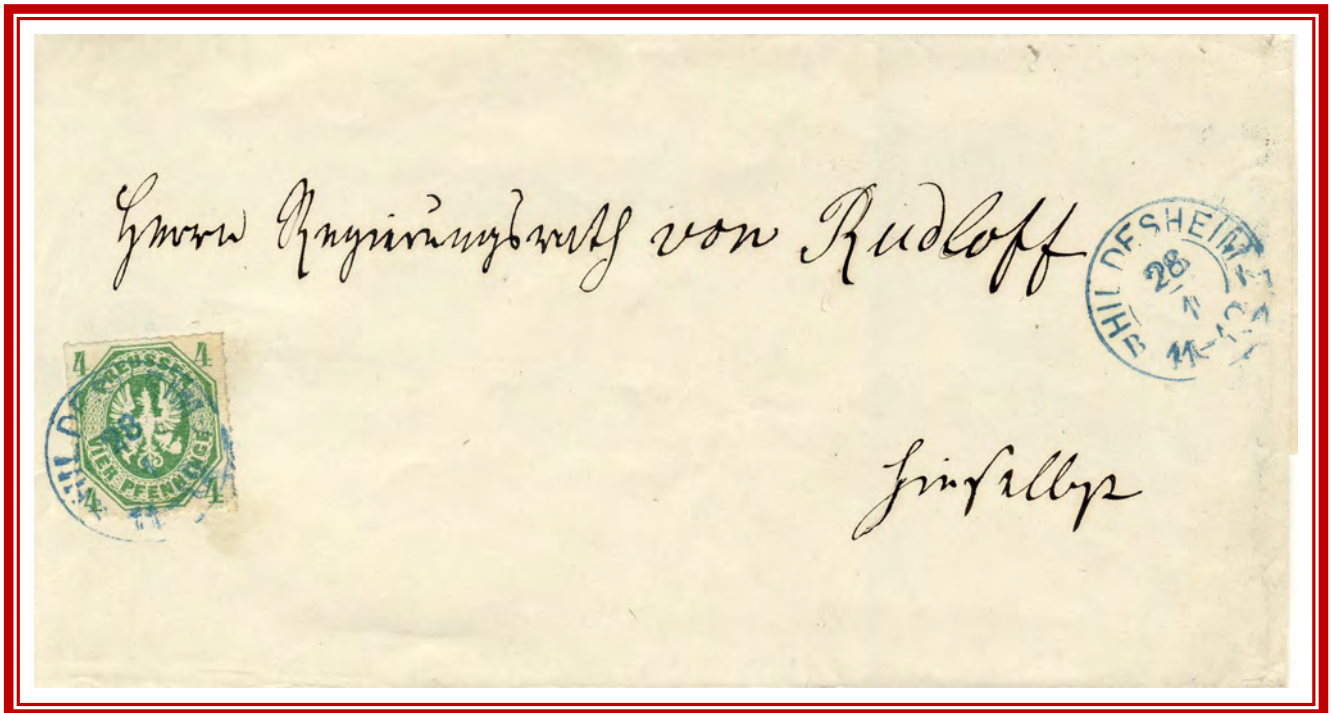 Herrn Regierungsrath von Rudloff
HILDESHEIM
28
11-12
4 4
PREUSSEN
28
VIER PFENNINGE
4 4
11
hieselbst